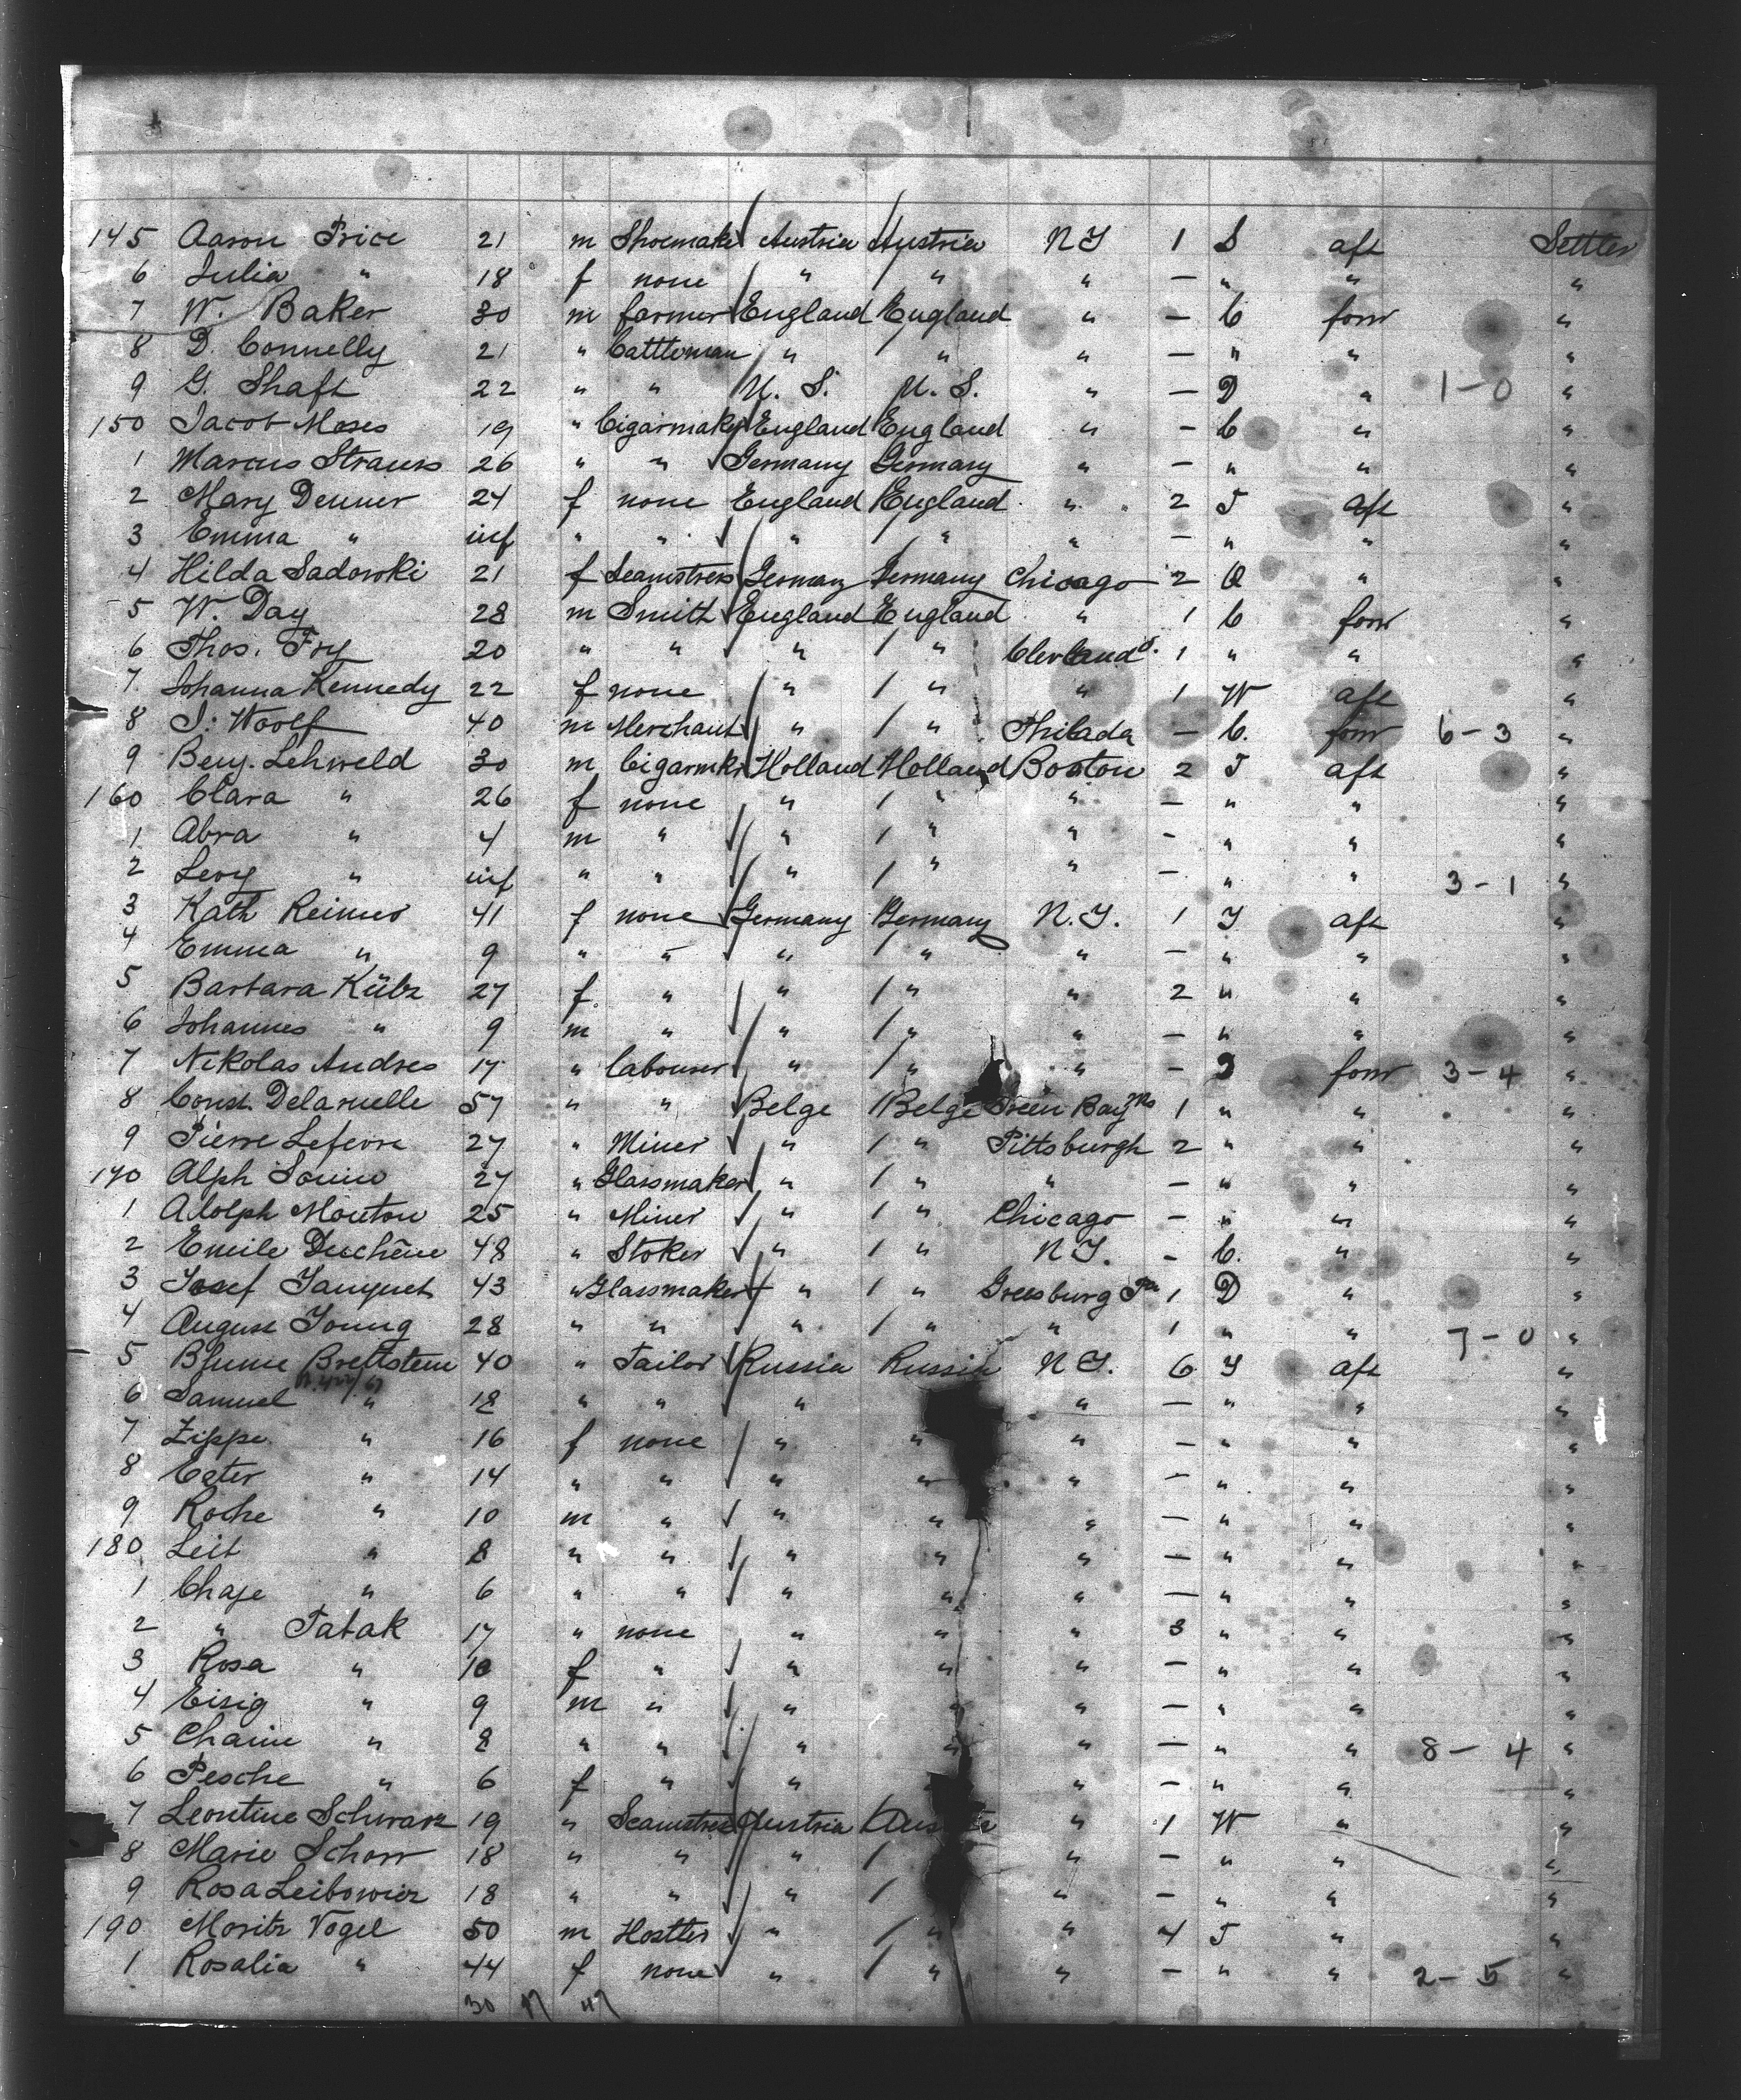 145 Aaron Price 21 m Shoemaker Austria Austria N Y 1 S aft Settler
6 Julia " 18 f none " " " — " " "
7 W. Baker 30 m farmer England England " — C forw "
8 D. Connelly 21 " Cattleman " " " — " " "
9 G. Shaft 22 " " U. S. U. S. " — D " 1 - 0 "
150 Jacob Moses 19 " Cigarmaker England England " - C " "
1 Marcus Strauss 26 " " Germany Germany " - " " "
2 Mary Denner 24 f none England England " 2 T aft "
3 Emma " inf " " " " " - " " "
4 Hilda Sadowski 21 f Seamstress Germany Germany Chicago 2 Q " "
5 W. Day 28 m Smith England England " 1 C forw "
6 Thos. Fry 20 " " " " Clevland O. 1 " " "
7 Johanna Kennedy 22 f none " " " 1 W aft "
8 I. Woolf 40 m Merchant " " Philada — C. forw 6 - 3 "
9 Benj. Lehweld 30 m Cigarmkr Holland Holland Boston 2 T aft "
160 Clara " 26 f none " " " — " " "
1 Abra " 4 m " " " " - " " "
2 Levy " inf " " " " " - " " 3 - 1 "
3 Kath Reimers 41 f none Germany Germany N. Y. 1 T aft "
4 Emma " 9 " " " " " — " " "
5 Barbara Külz 27 f. " " " " 2 " " "
6 Johannes " 9 m " " " " — " " "
7 Nikolas Andres 17 " labourer " " " - D forw 3 - 4 "
8 Const. Delaruelle 57 " " Belge Belge Green Bay 1 " " "
9 Pierre Lefevre 27 " Miner " " Pittsburgh 2 " " "
170 Alph 27 " Glassmaker " " " - " " "
1 Adolph Mouton 25 " Miner " " Chicago - " " "
2 Emile Duchêne 48 " Stoker " " N Y. - C. " "
3 Josef Jauquet 43 " Glassmaker " " Greesburg Pa 1 D " "
4 August Young 28 " " " " " 1 " " 7 - 0 "
5 Blume Brettstein 40 " Tailor Russia Russia N Y. 6 T aft "
6 Samuel " 18 " " " " — " " "
7 Zippe " 16 f none " " " — " " "
8 Ester " 14 " " " " " — " " "
9 Roche " 10 m " " " " — " " "
180 Leib " 8 " " " " " — " " "
1 Chaje " 6 " " " " " — " " "
2 " Tabak 17 " none " " " 3 " " "
3 Rosa " 10 f " " " " — " " "
4 Eisig " 9 m " " " " — " " "
5 Chaim " 8 " " " " " — " " 8 - 4 "
6 Pesche " 6 f " " " - " " "
7 Leontine Schwarz 19 " Seamstress Austria Aus " 1 W " "
8 Marie Schorr 18 " " " " — " " "
9 Rosa Leibowicz 18 " " " " — " " "
190 Moritz Vogel 50 m Hostler " " " 4 T " "
1 Rosalia " 44 f none " " " — " " 2 - 5 "
30 17 47